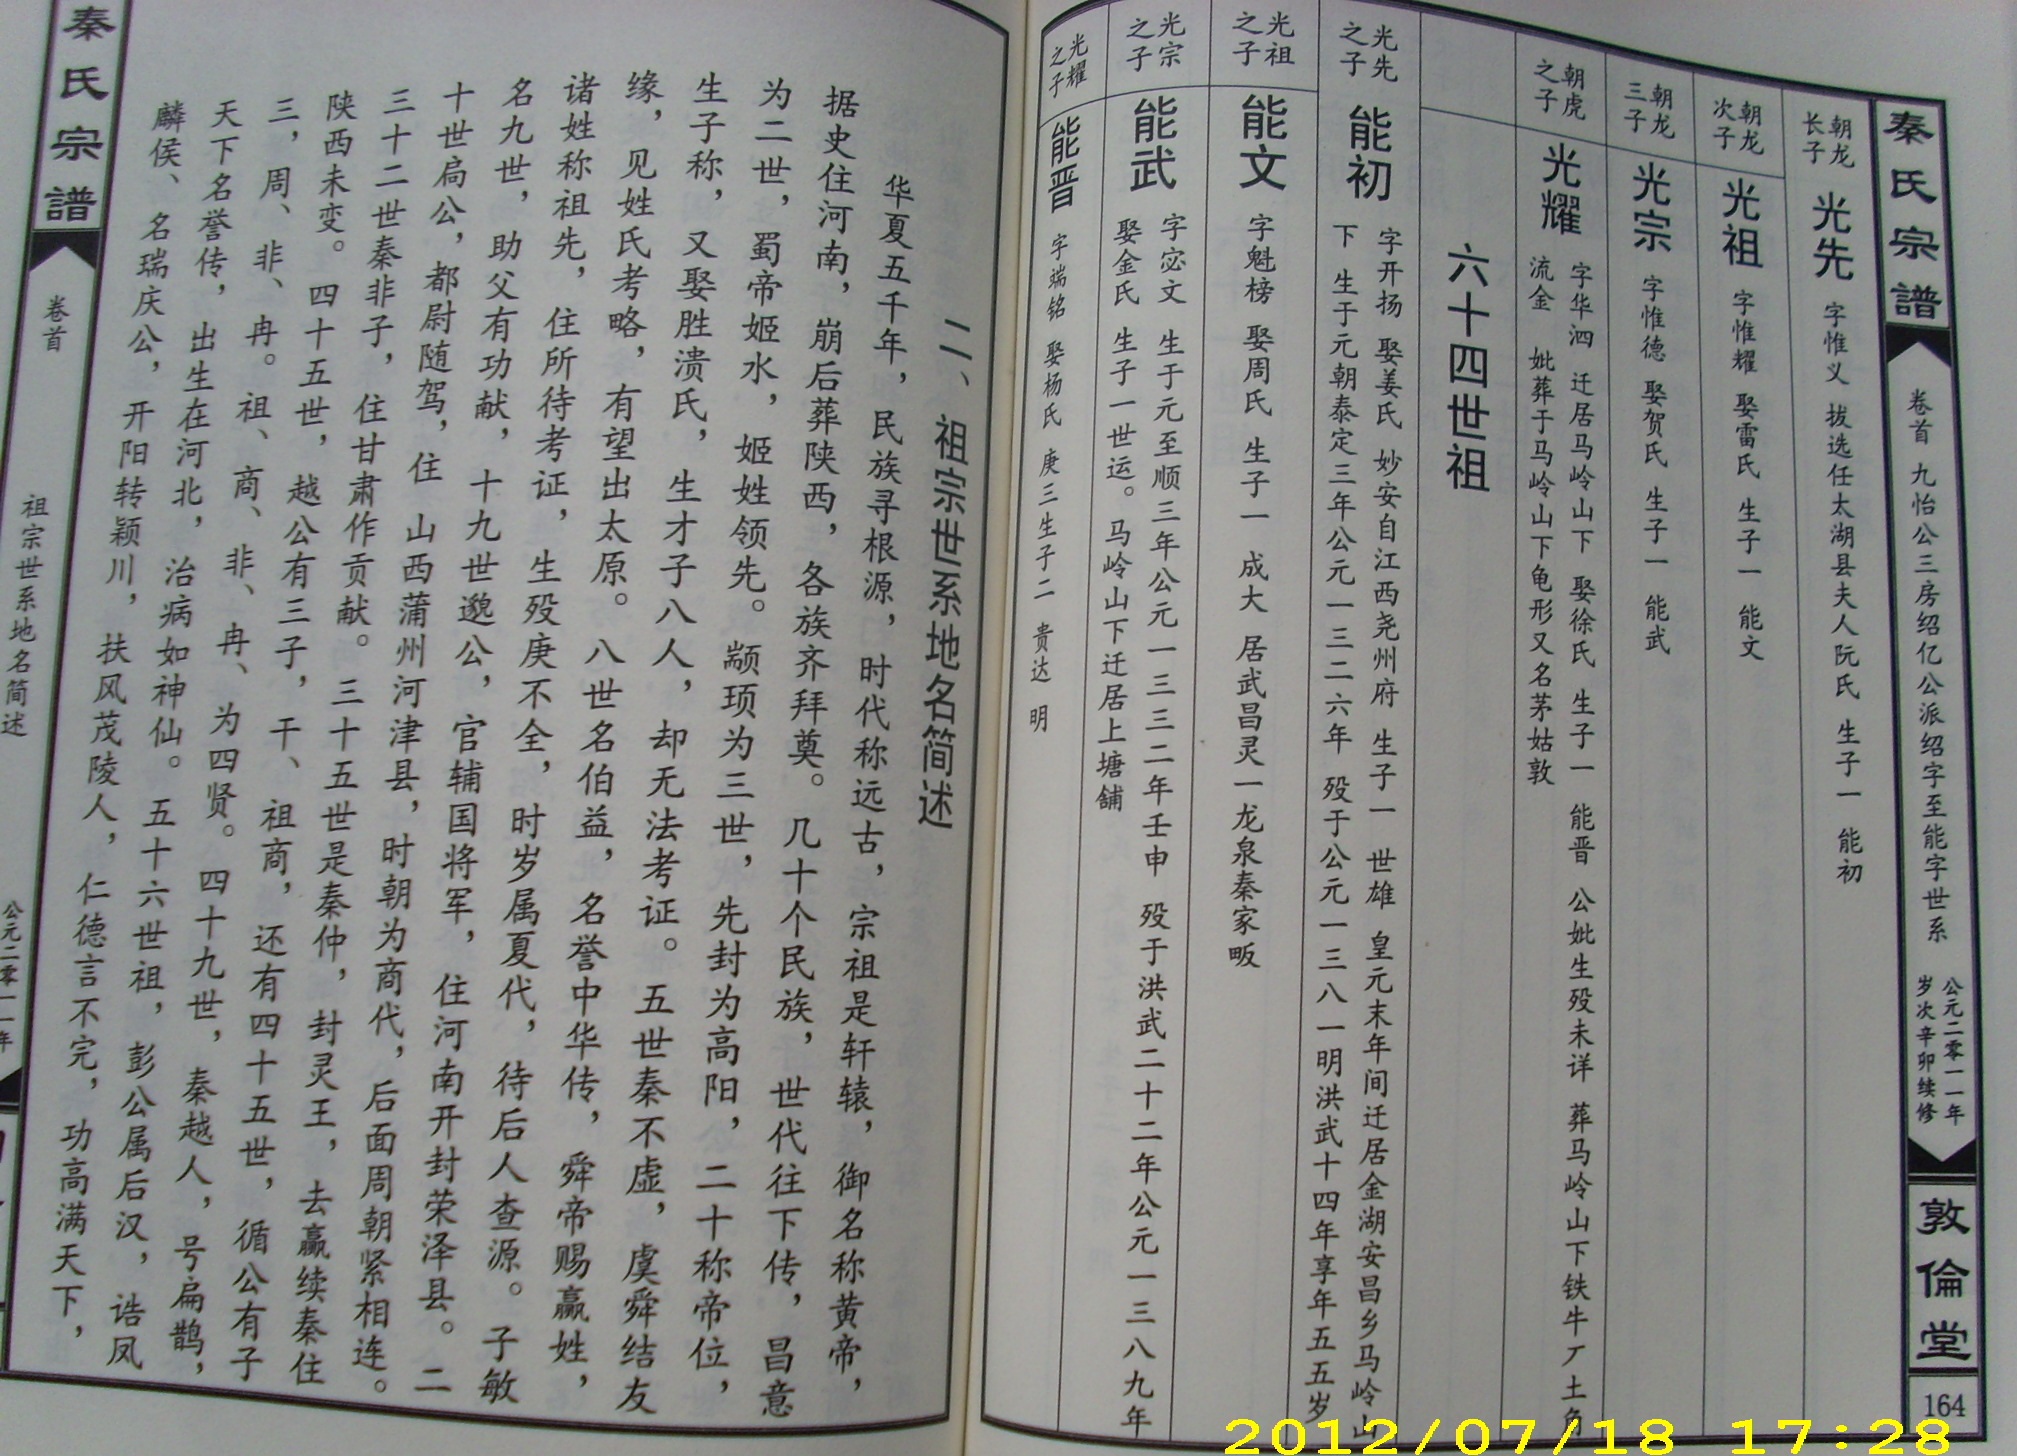 秦氏宗譜
卷首 九怡公三房绍亿公派绍字至能字世系
公元二零一一年
岁次辛卯续修
敦倫堂
164
朝龙
长子
光先 字惟义 拔选任太湖县夫人阮氏 生子一 能初
朝龙
次子
光祖 字惟耀 娶雷氏 生子一 能文
朝龙
三子
光宗 字惟德 娶贺氏 生子一 能武
朝虎
之子
光耀 字华泗 迁居马岭山下 娶徐氏 生子一 能晋 公妣生殁未详 葬马岭山下铁牛厂土角
流金 妣葬于马岭山下龟形又名茅姑敦
六十四世祖
光先
之子
能初 字开扬 娶姜氏 妙安自江西尧州府 生子一 世雄 皇元末年间迁居金湖安昌乡马岭山
下 生于元朝泰定三年公元一三二六年 殁于公元一三八一明洪武十四年享年五五岁
光祖
之子
能文 字魁榜 娶周氏 生子一 成大 居武昌灵一龙泉秦家畈
光宗
之子
能武 字宓文 生于元至顺三年公元一三三二年壬申 殁于洪武二十二年公元一三八九年
娶金氏 生子一世运。马岭山下迁居上塘舖
光耀
之子
能晋 字端铭 娶杨氏 庚三生子二 贵达 明
二、祖宗世系地名简述
华夏五千年，民族寻根源，时代称远古，宗祖是轩辕，御名称黄帝，
据史住河南，崩后葬陕西，各族齐拜奠。几十个民族，世代往下传，昌意
为二世，蜀帝姬水，姬姓领先。颛顼为三世，先封为高阳，二十称帝位，
生子称，又娶胜溃氏，生才子八人，却无法考证。五世秦不虚，虞舜结友
缘，见姓氏考略，有望出太原。八世名伯益，名誉中华传，舜帝赐嬴姓，
诸姓称祖先，住所待考证，生殁庚不全，时岁属夏代，待后人查源。子敏
名九世，助父有功献，十九世邈公，官辅国将军，住河南开封荣泽县。二
十世扃公，都尉随驾，住 山西蒲州河津县，时朝为商代，后面周朝紧相连。
三十二世秦非子，住甘肃作贡献。三十五世是秦仲，封灵王，去嬴续秦住
陕西未变。四十五世，越公有三子，干、祖商，还有四十五世，循公有子
三，周、非、冉。祖、商、非、冉、为四贤。四十九世，秦越人，号扁鹊，
天下名誉传，出生在河北，治病如神仙。五十六世祖，彭公属后汉，诰凤
麟侯、名瑞庆公，开阳转颖川，扶风茂陵人，仁德言不完，功高满天下，
秦氏宗譜
卷首
祖宗世系地名简述
公元二零一一年
2012/07/18 17:28